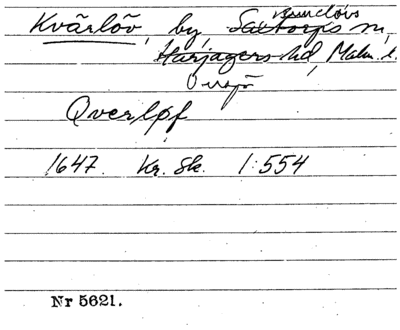 Kvärlöv, by, Saxtorps sn,
Harjagers hd, Malm. l.
Qverløf
1647. Kr. Sk. 1:554
Nr 5621.